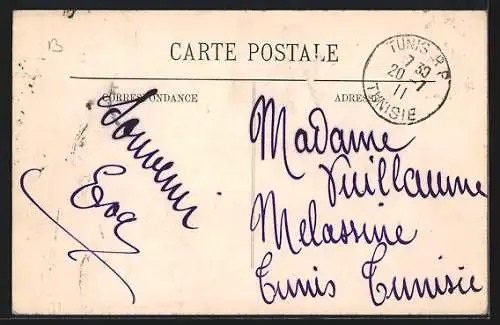 B
CARTE POSTALE
CORRESPONDANCE
ADRESSE
TUNIS R.P.
7 30
20 -7
11
TUNISIE
Souvenir
Eva
Madame
Vuillaume
Melassine
Tunis Tunisie